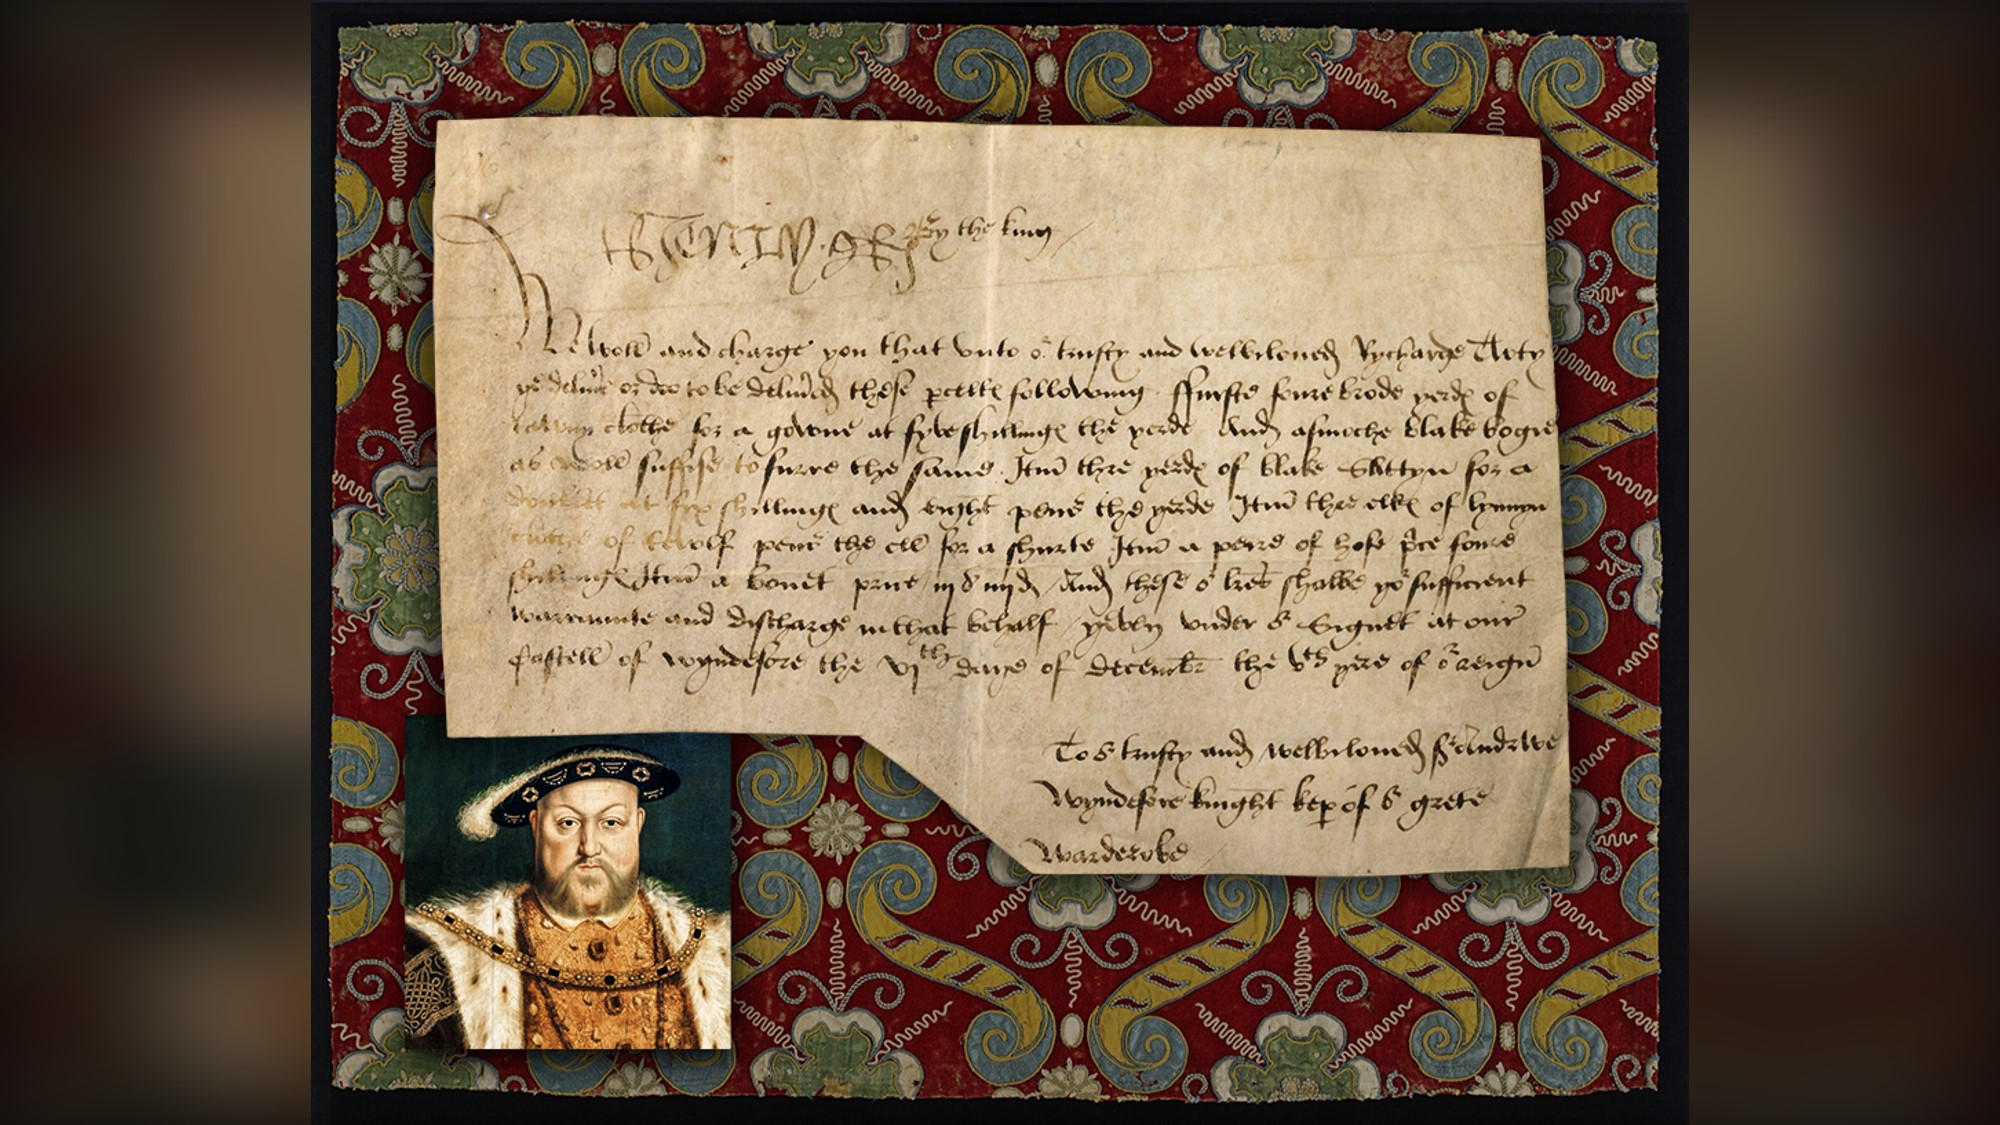 Henry R By the king
We woll and charge you that unto oʳ trusty and welbiloued Rycharge
ye delyuer or doo to be delyuered these pcelles following ffurste foure brode yerdes of
tawny clothe for a gowne at fyve shillinges the yerde And asmoche blake bogie
as woll suffise to furre the same. Itm̄ thre yerdes of blake Sattyn for a
doublet at syx shillinges and eight pens the yerde Itm̄ thre elles of lynnyn
clothe of twolf pens the ell for a shurte Itm̄ a peire of hose pʳce foure
shillinges Itm̄ a bonet price iij s iiij d And these oʳ lres shalbe yoʳ sufficient
warraunte and discharge in that behalf yeven under oʳ Signet at our
Castell of Wyndesore the vjth daye of decembr the vth yere of oʳ reign
To oʳ trusty and welbiloued Sʳ Andrewe
Wyndesore knight kepʳ of oʳ grete
Warderobe